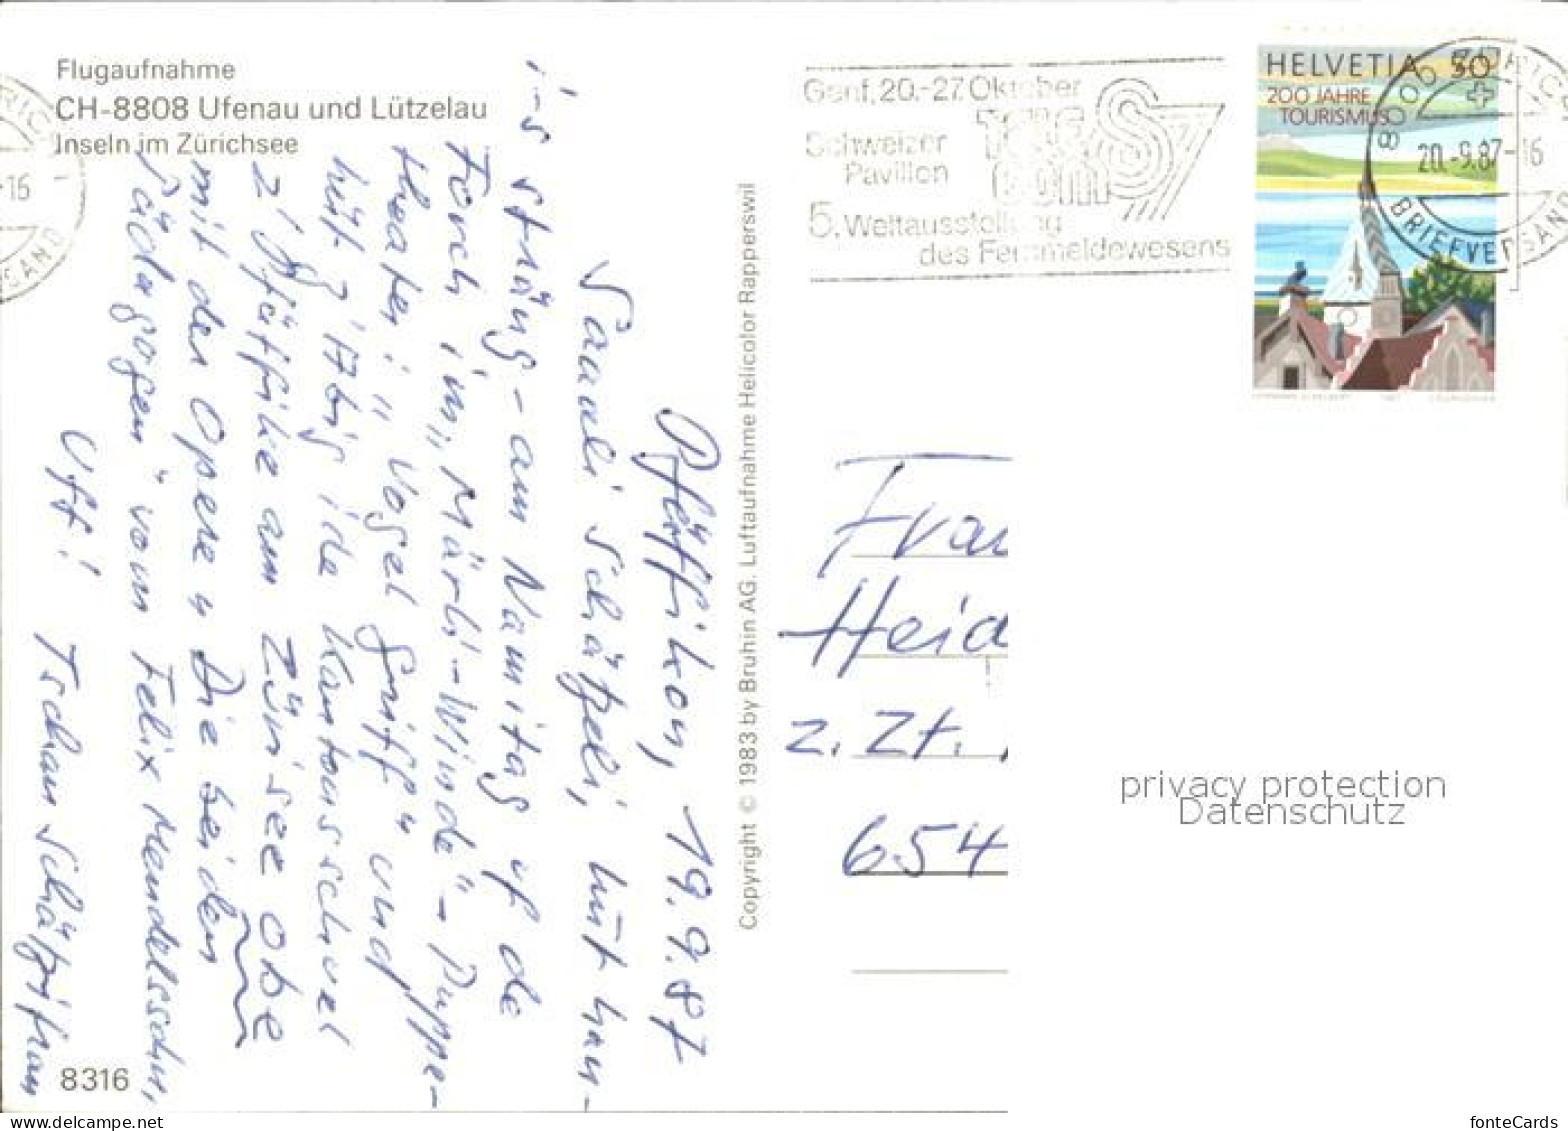 Flugaufnahme
CH-8808 Ufenau und Lützelau
Inseln im Zürichsee
Pfäffikon, 19.9.87
Saali Schätzeli, hüt han-
i-s sträng - am Namitag uf de
Forch im „Märli-Winde"- Puppe-
theater i „Vogel Griff" und
hüt z'Abig i de Kantonsschuel
z'Pfäffike am Zürisee obe
mit der Opere „Die beiden
Pädagogen" vom Felix Mendelssohn,
Uff! Tschau Schätzi
8316
Copyright © 1983 by Bruhin AG. Luftaufnahme Helicolor Rapperswil
Genf, 20.-27. Oktober
Schweizer
Pavillon
TELE
COM 87
5. Weltausstellung
des Fernmeldewesens
HELVETIA 50
200 JAHRE
TOURISMUS
20.-9.87-16
BRIEFVERSAND
-16
Frau
Heid
z. Zt.
654
privacy protection
Datenschutz
www.delcampe.net
fonteCards